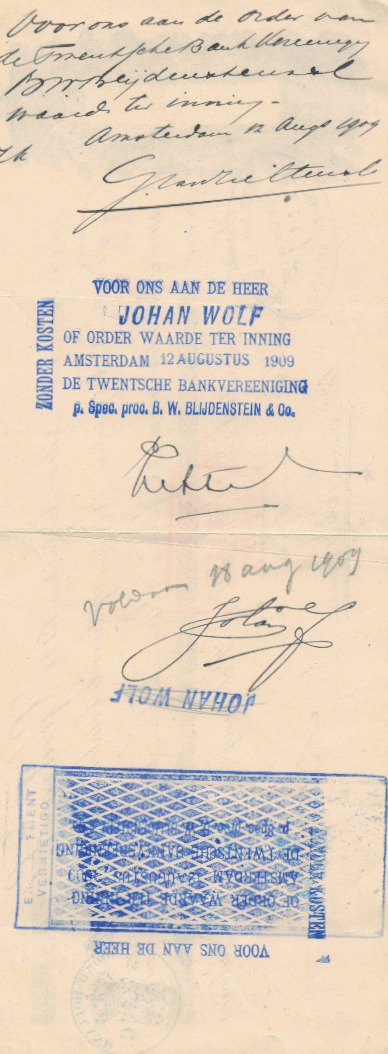 Voor ons aan de order van
de Twentsche Bank Vereenigg
B W Blijdenstein
waarde ter inning -
Amsterdam 12 Augs 1909
ZONDER KOSTEN
VOOR ONS AAN DE HEER
JOHAN WOLF
OF ORDER WAARDE TER INNING
AMSTERDAM 12 AUGUSTUS 1909
DE TWENTSCHE BANKVEREENIGING
p. Spec. proc. B. W. BLIJDENSTEIN & Co.
Voldaan 18 aug 1909
JOHAN WOLF
ENDOSSEMENT
VERNIETIGD
p. Spec. proc. B. W. BLIJDENSTEIN & Co.
DE TWENTSCHE BANKVEREENIGING
AMSTERDAM 12 AUGUSTUS 1909
OF ORDER WAARDE TER INNING
ZONDER KOSTEN
VOOR ONS AAN DE HEER